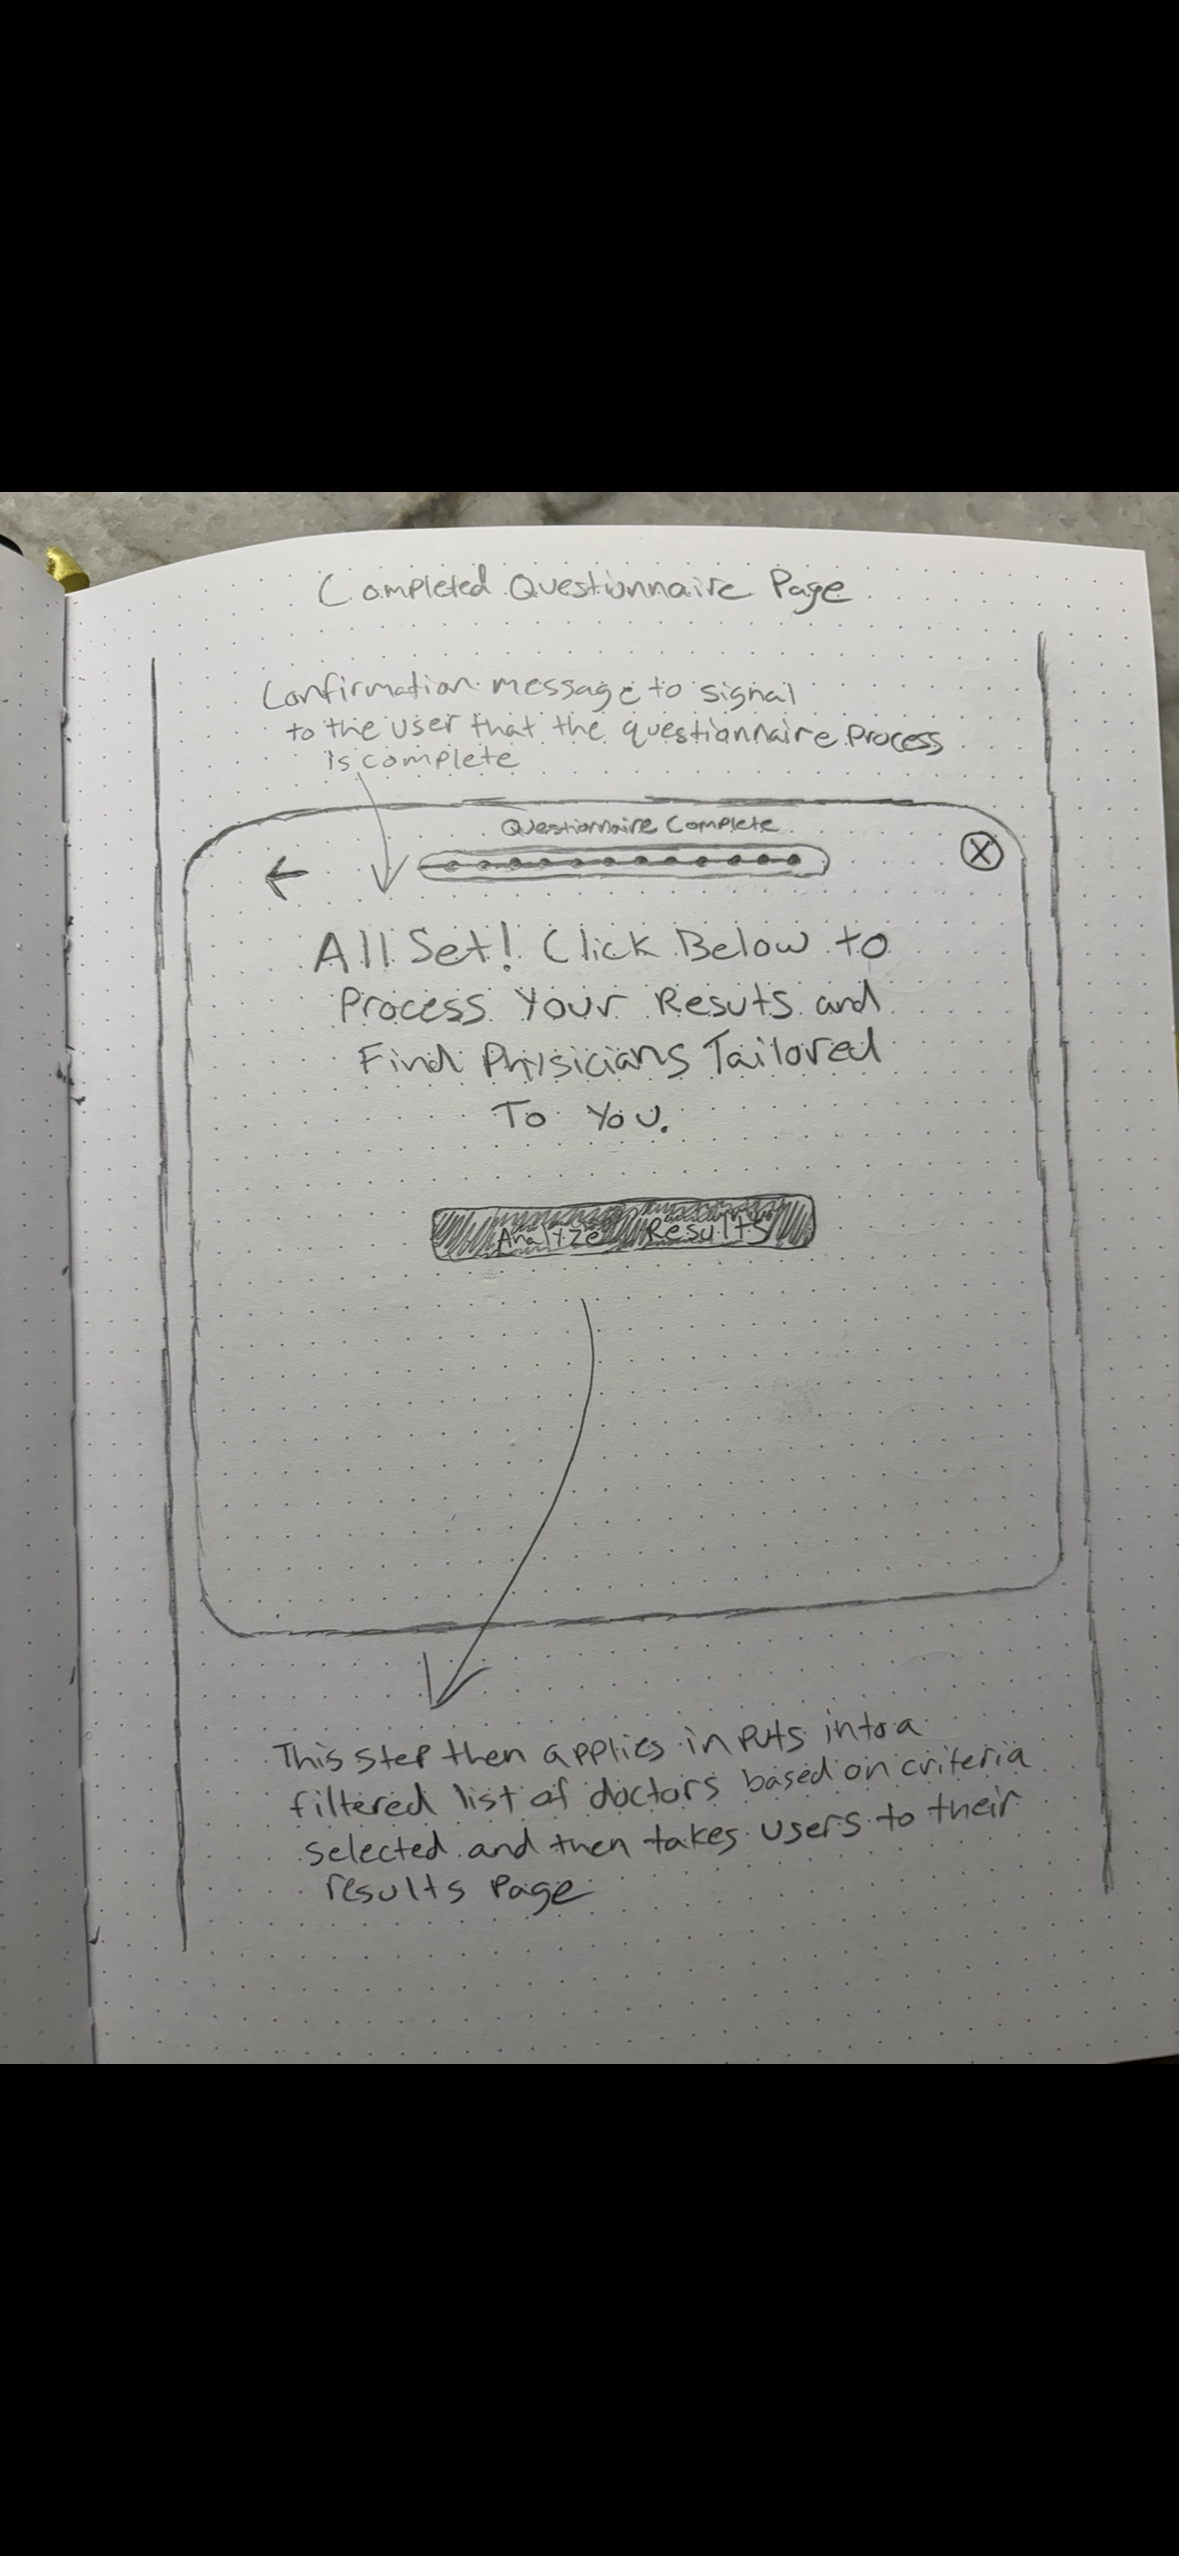 Completed Questionnaire Page
Confirmation message to signal
to the user that the questionnaire process
is complete
Questionnaire Complete
X
All Set! Click Below to
Process Your Resuts and
Find Physicians Tailored
To You.
Analyze Results
This step then applies inputs into a
filtered list of doctors based on criteria
selected and then takes users to their
results page